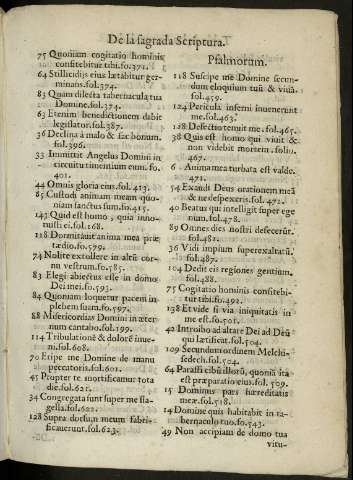 De la sagrada Scriptura.
75 Quoniam cogitatio hominis
confitebitur tibi.fo.371.
64 Stillicidijs eius lætabitur ger-
minans.fol.374.
83 Quam dilecta tabernacula tua
Domine.fol.374.
63 Etenim benedictionem dabit
legislator.fol.387.
36 Declina à malo & fac bonum.
fol.396.
33 Immittit Angelus Domini in
circuitu timentium eum. fo.
401.
44 Omnis gloria eius.fol.413.
85 Custodi animam meam quo-
niam sanctus sum.fo.415.
143 Quid est homo, quia inno-
tuisti ei.fol.168.
118 Dormitauit anima mea præ
tædio.fo.599.
74 Nolite extollere in altũ cor-
nu vestrum.fo.585.
83 Elegi abiectus esse in domo
Dei mei.fo.593.
84 Quoniam loquetur pacem in
plebem suam.fo.597.
88 Misericordias Domini in æter-
num cantabo.fol.199.
114 Tribulationẽ & dolorẽ inue-
ni.fol.608.
70 Eripe me Domine de manu
peccatoris.fol.601.
43 Propter te mortificamur tota
die.fol.621.
34 Congregata sunt super me fla-
gella.fol.622.
128 Supra dorsum meum fabri-
cauerunt.fol.623.
Psalmorum.
118 Suscipe me Domine secun-
dum eloquium tuũ & viuã.
fol.459.
124 Pericula inferni inuenerunt
me.fol.463.
128 Defectio tenuit me.fol.465.
38 Quis est homo qui viuit &
non videbit mortem.folio
467.
6 Anima mea turbata est valde.
471.
54 Exaudi Deus orationem meã
& ne despexeris.fol.472.
40 Beatus qui intelligit super ege
num.fol.478.
89 Omnes dies nostri defecerũt.
fol.482.
36 Vidi impium superexaltatũ.
fol.487.
104 Dedit eis regiones gentium.
fol.488.
75 Cogitatio hominis confitebi-
tur tibi.fo.492.
138 Et vide si via iniquitatis in
me est.fo.501.
42 Introibo ad altare Dei ad Deũ
qui lætificat.fol.504.
109 Secundum ordinem Melchi-
sedech.fol.504.
64 Parasti cibũ illorũ, quoniã ita
est præparatio eius.fol.509.
15 Dominus pars hæreditatis
meæ.fol.518.
14 Domine quis habitabit in ta-
bernaculo tuo.fo.543.
49 Non accipiam de domo tua
vitu-